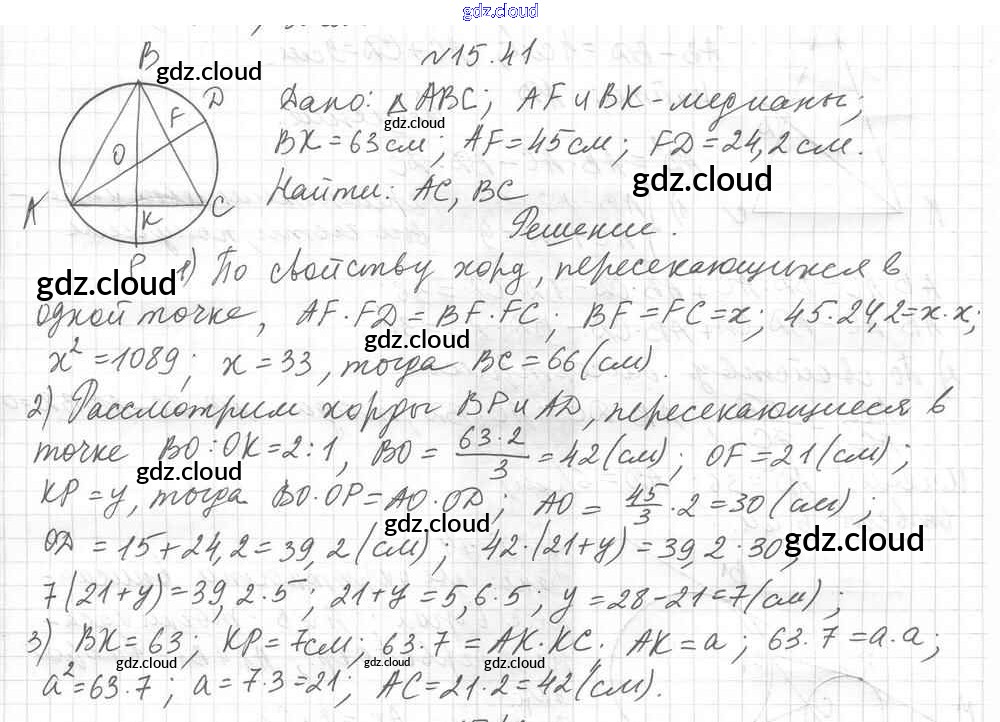 gdz.cloud
№15.41
Дано: △ABC; AF и BK - медианы;
BK = 63 см; AF = 45 см; FD = 24,2 см.
Найти: AC, BC
Решение.
1) По свойству хорд, пересекающихся в
одной точке, AF·FD = BF·FC; BF = FC = x; 45·24,2 = x·x;
x² = 1089; x = 33, тогда BC = 66 (см).
2) Рассмотрим хорды BP и AD, пересекающиеся в
точке BO:OK = 2:1, BO = 63·2/3 = 42 (см); OF = 21 (см);
KP = y, тогда BO·OP = AO·OD; AO = 45/3·2 = 30 (см);
OD = 15 + 24,2 = 39,2 (см); 42·(21+y) = 39,2·30;
7(21+y) = 39,2·5; 21+y = 5,6·5; y = 28-21 = 7 (см);
3) BK = 63; KP = 7см; 63·7 = AK·KC. AK = a; 63·7 = a·a;
a² = 63·7; a = 7·3 = 21; AC = 21·2 = 42 (см).
B
D
F
O
A
K
C
P
gdz.cloud
gdz.cloud
gdz.cloud
gdz.cloud
gdz.cloud
gdz.cloud
gdz.cloud
gdz.cloud
gdz.cloud
gdz.cloud
gdz.cloud